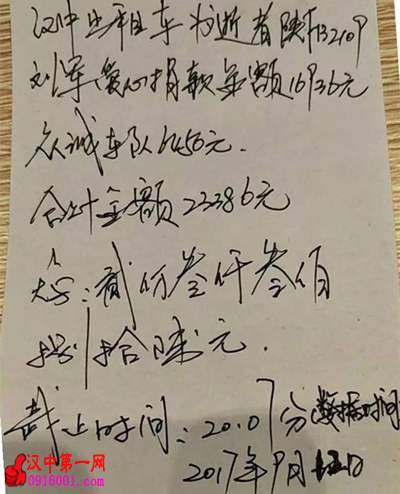 汉中出租车为逝者陕
刘军爱心捐款金额16936元
众诚车队6450元.
合计金额23386元
大写:贰万叁仟叁佰
捌拾陆元.
截止时间:20:07分数据时间
2017年9月 日
汉中第一网
0916001.com